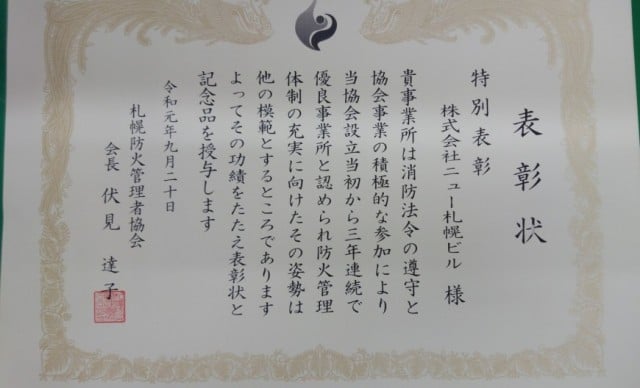 表彰状
特別表彰
株式会社ニュー札幌ビル 様
貴事業所は消防法令の遵守と
協会事業の積極的な参加により
当協会設立当初から三年連続で
優良事業所と認められ防火管理
体制の充実に向けたその姿勢は
他の模範とするところであります
よってその功績をたたえ表彰状と
記念品を授与します
令和元年九月二十日
札幌防火管理者協会
会長 伏見 達子